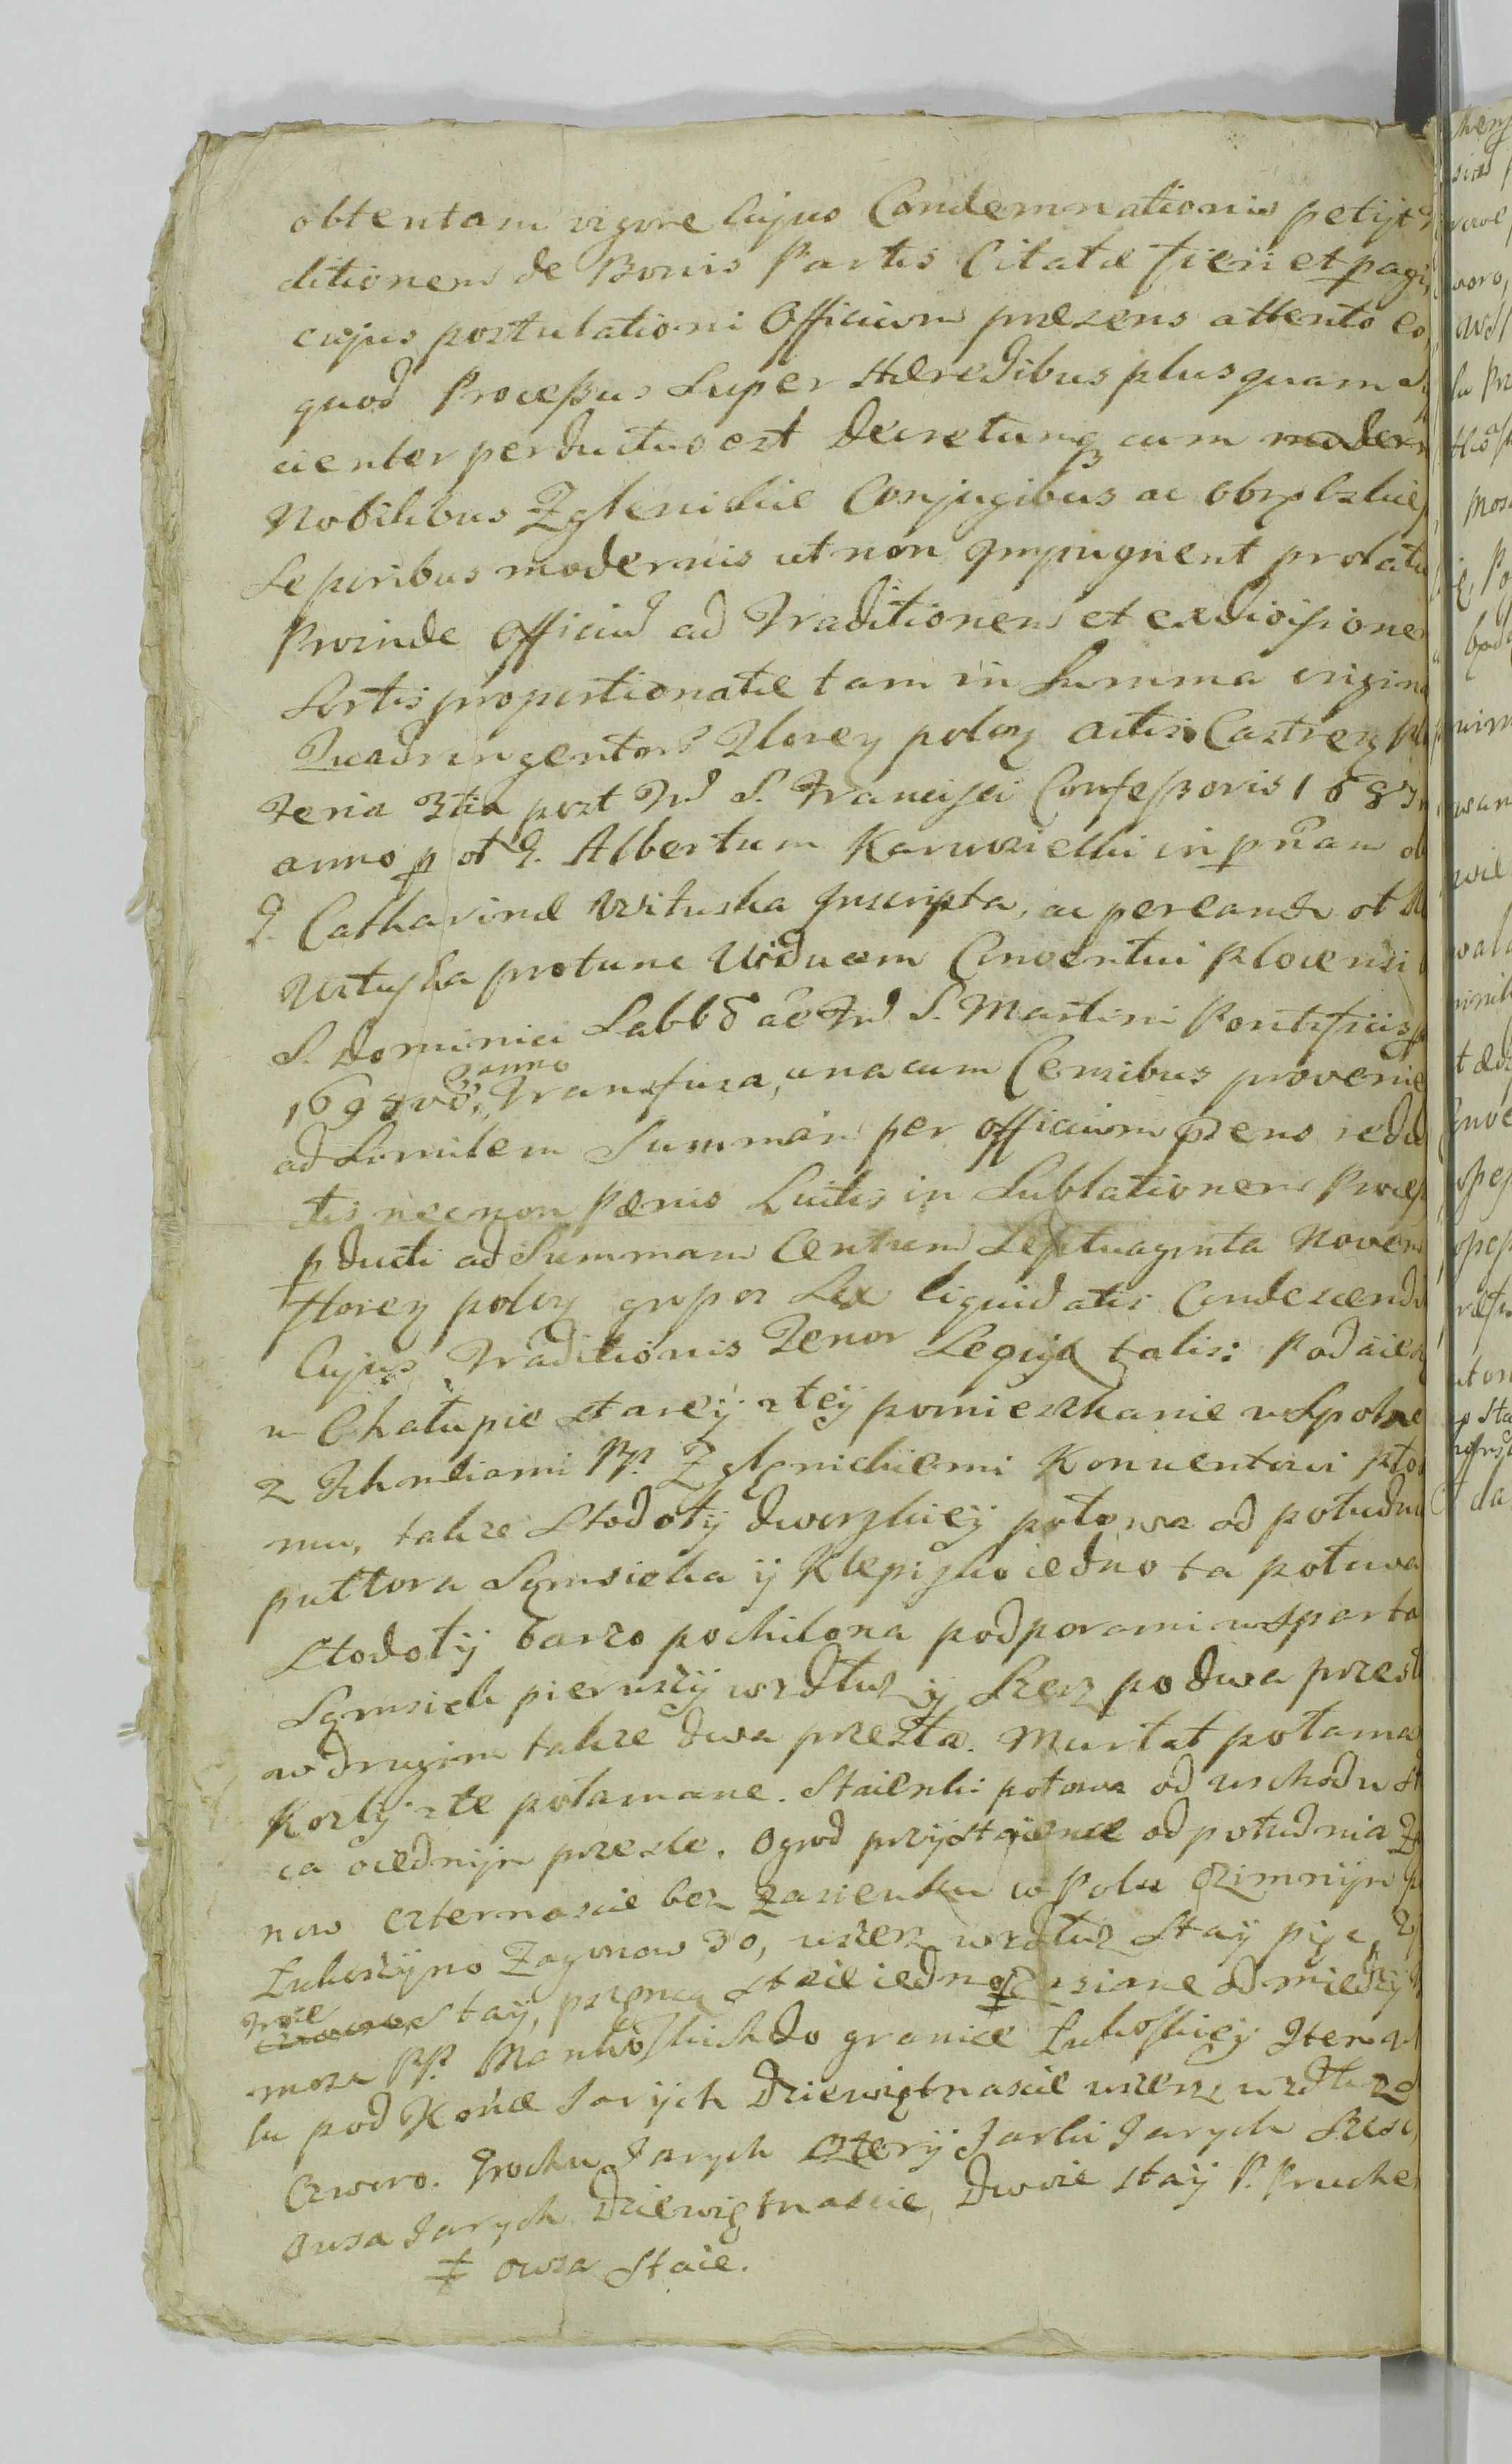 obtentam vigore cujus Condemnationis petijt
ditionem de Bonis Partis Citatæ fieri et pagi
cujus postulationi Officium præsens attento eo,
quod Processus Super Hæredibus plusquam
cienter perductus est Decretumq cum modern
Nobilibus Zglenickie Conjugibus ac
modernis ut non Impugnent prolatu
Proinde Officiu ad Traditionem et exdivisionem
Sortis proportionatæ tam in Summa origina
Quadringentor Florey poloy actis Castren
Feria 3tia post F S. Francisci Confessoris 168
anno p ol G. Albertum Karwosiecki in pñam
G. Catharinæ Inscripta, ac per eandē ol
protunc Viduam Conventui Plocensi
S. Dominici Sabbō añ F S. Martini Pontificis
anno
Transfusa, una cum Censibus provenie
ad Similem Summam per officium præns redu
ctis necnon Pænis Luitis in Sublationem Process
pducti ad Summam Centum Septuaginta Novem
florey poloy gropor Sex liquidatis Condescendi
Cujus Traditionis Tenor Sequit talis: Podaiem
w Chałupie starey złey pomieszkanie wspolne
z Ichmciami PP. Zglenickiemi Konwentowi Płoc
mu, także Stodoły dworskiey połowa od południ
puttora Sąmsieka y Klepisko iedno ta połowa
Stodoły barzo pochilona podporami wsparta
Sąmsiek pierwszy wzdłuż y Szerz po dwa przesł
w drugim także dwa przesła. Murłat połama
Kozły złe połamane. Staienki połowa od wschodu st
ca o iednym przesle. Ogrod przy staience od południa Za
now czternascie bez zasiewku w Polu Ozimnym
Zagonow 30, wszerz wzdłuż Stay pięc,
troie
Stay, pszenicą staie iedno ╪ zsiane od miedzy
moza PP. Mankoskich do granice Łukoskiey Item
lu pod Końce Jarych Dziewiętnascie wszerz wzdłuż
Czworo. Grochu Jarych cztery Jarki Jarych Szesc,
Owsa Jarych Dziewiętnascie, Dwoie stay P. Pruche
╪ owsa Staie.